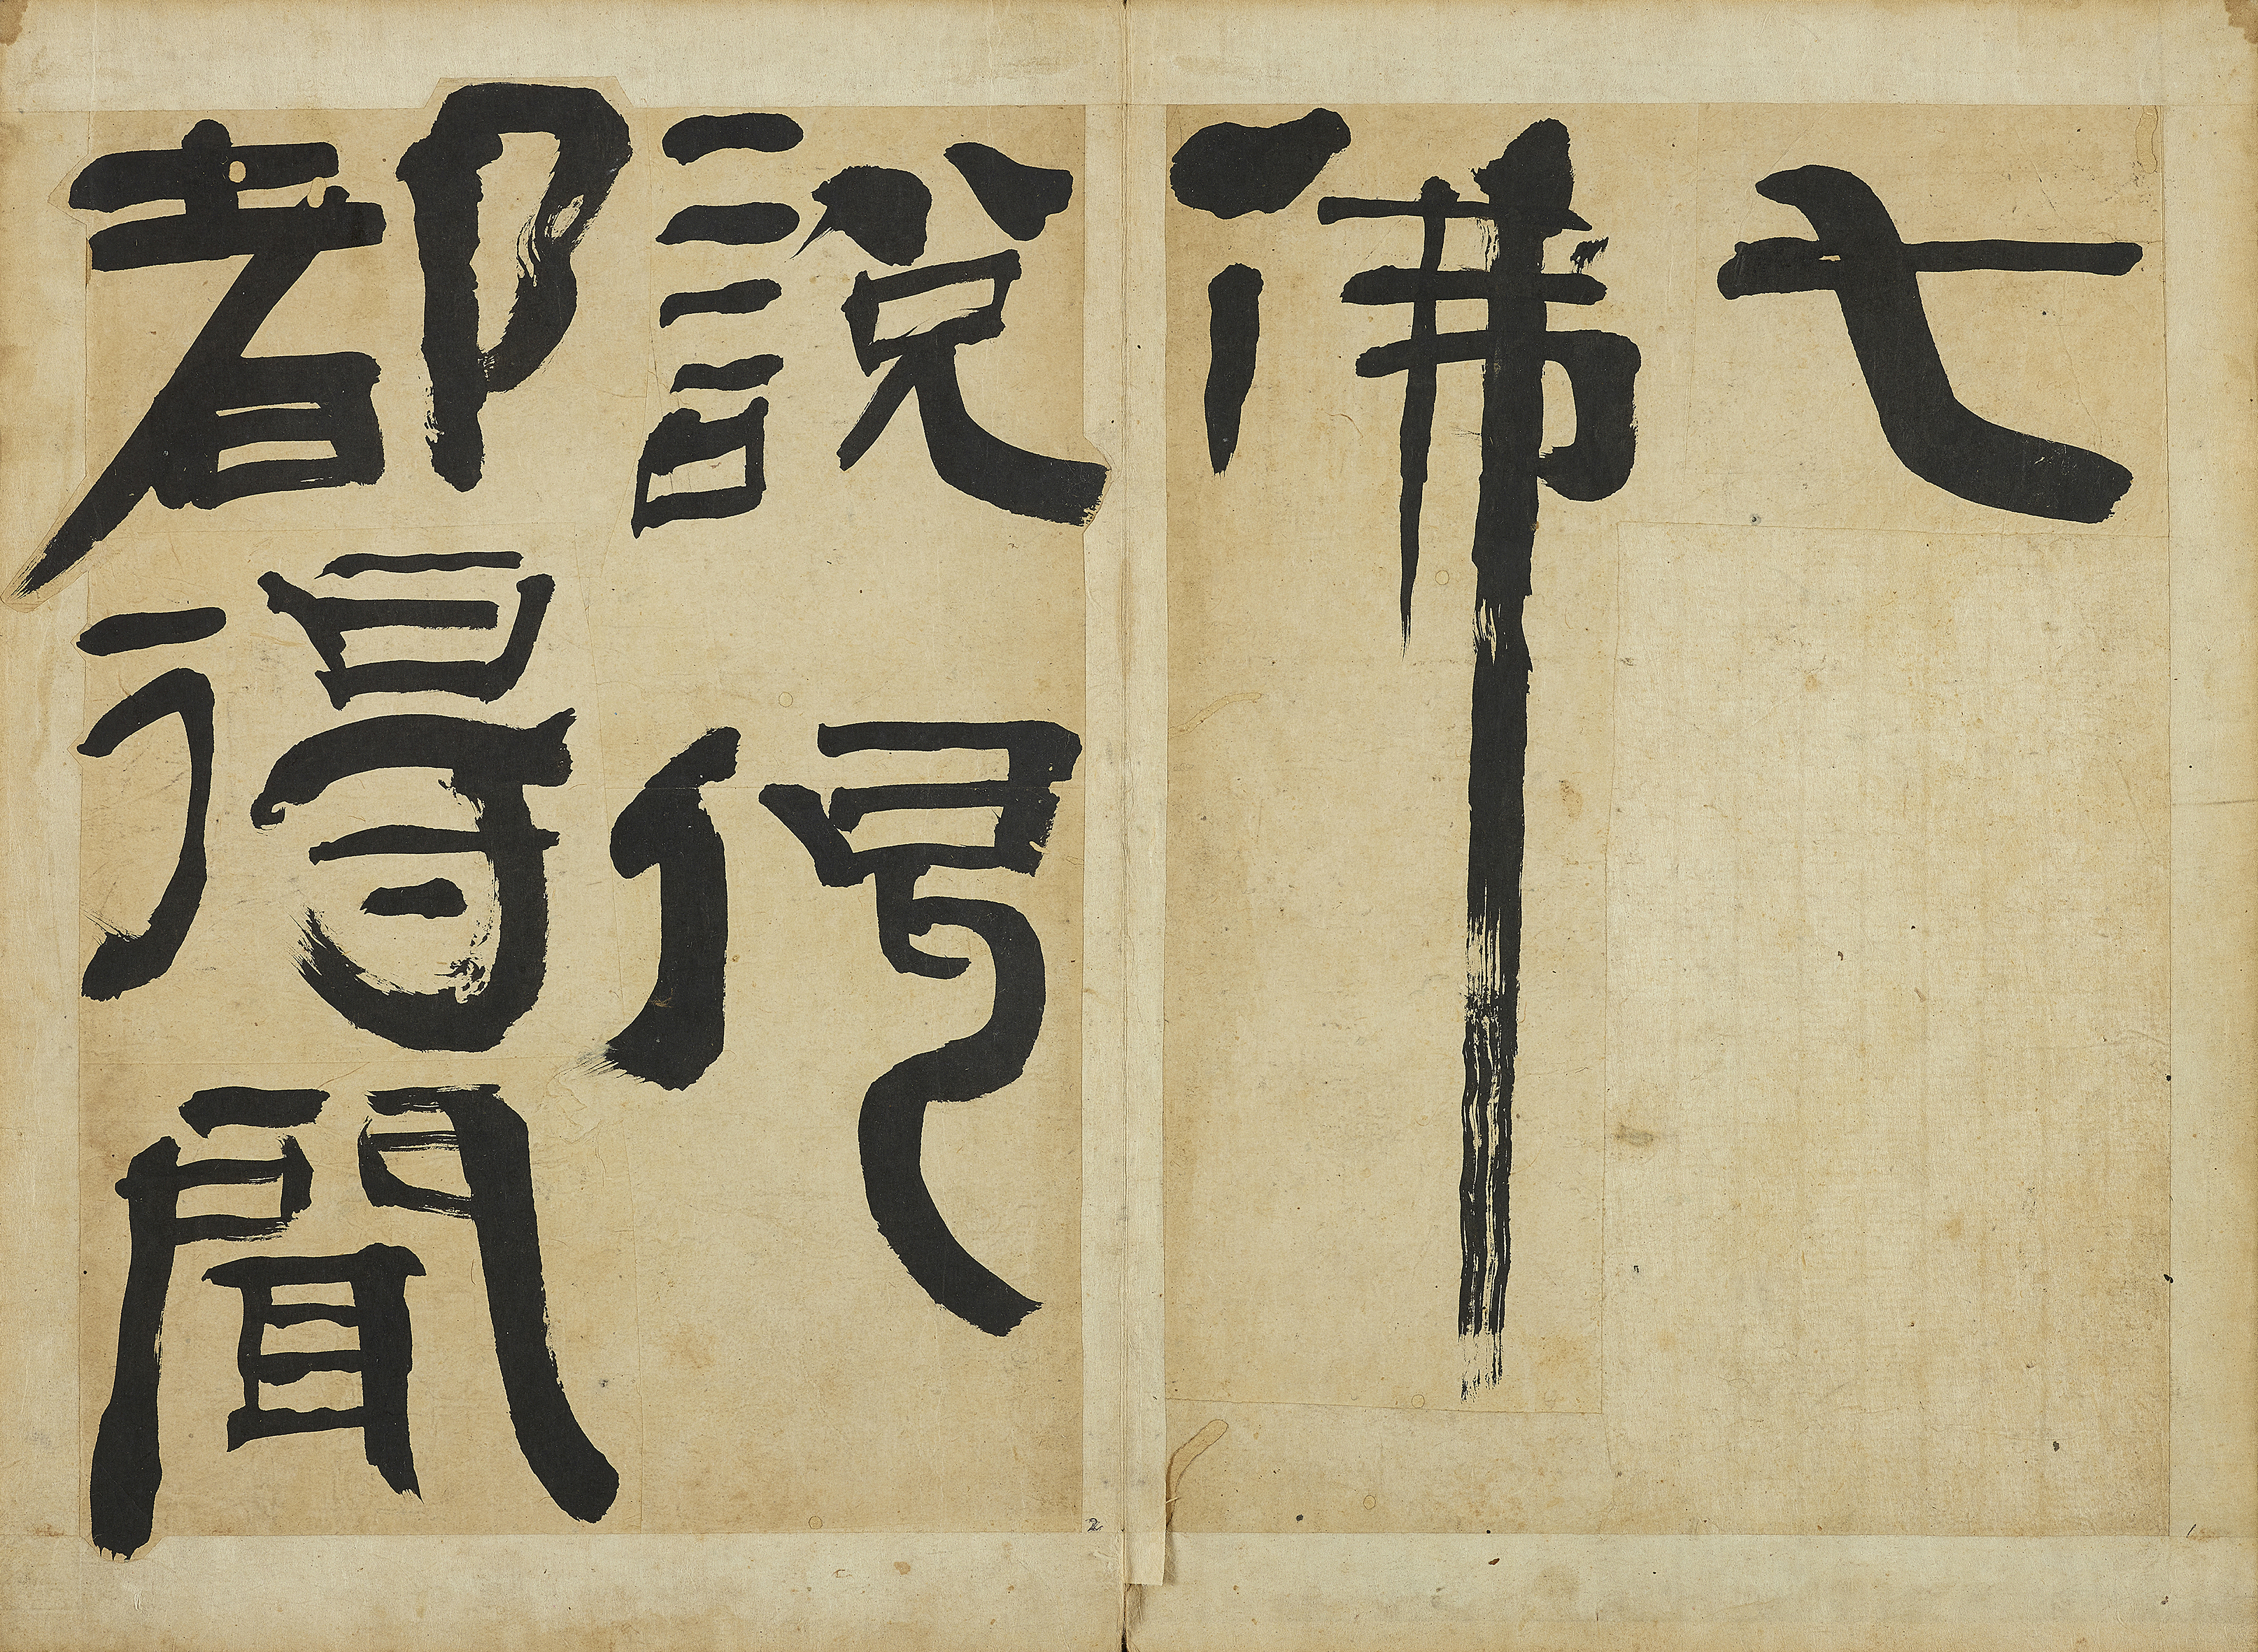 七
佛
說偈
都得聞
1
2